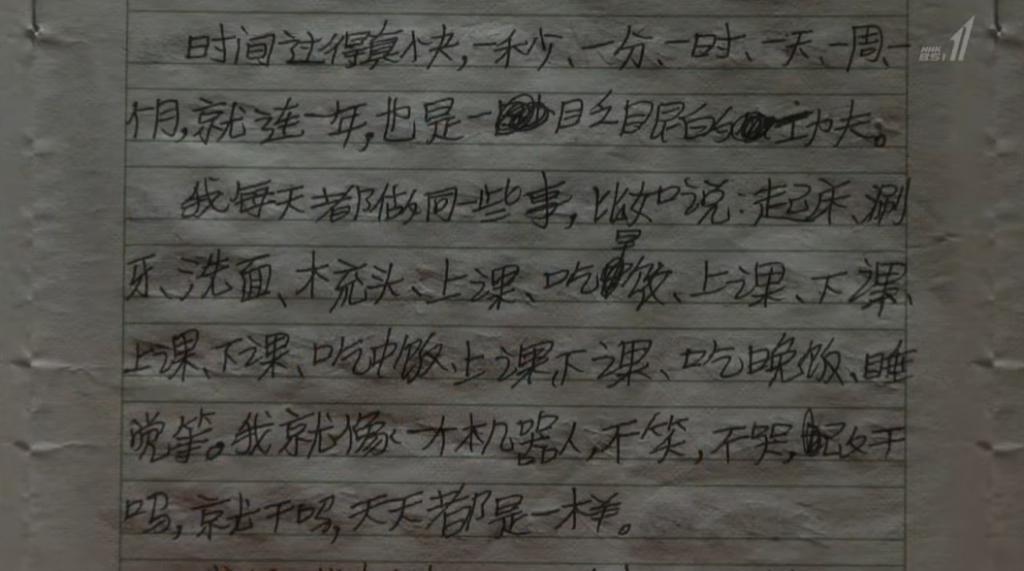 NHK
BS1
时间过得真快,一秒、一分、一时、一天、一周、一
个月,就连一年,也是一目乏目眼的工功夫。
我每天都做同一些事,比如说:起床、涮
牙、洗面、木充头、上课、吃早饭、上课、下课、
上课、下课、吃中饭、上课、下课、吃晚饭、睡
觉等。我就像一木机器人,不笑,不哭,干
吗,就干吗,天天都是一样。